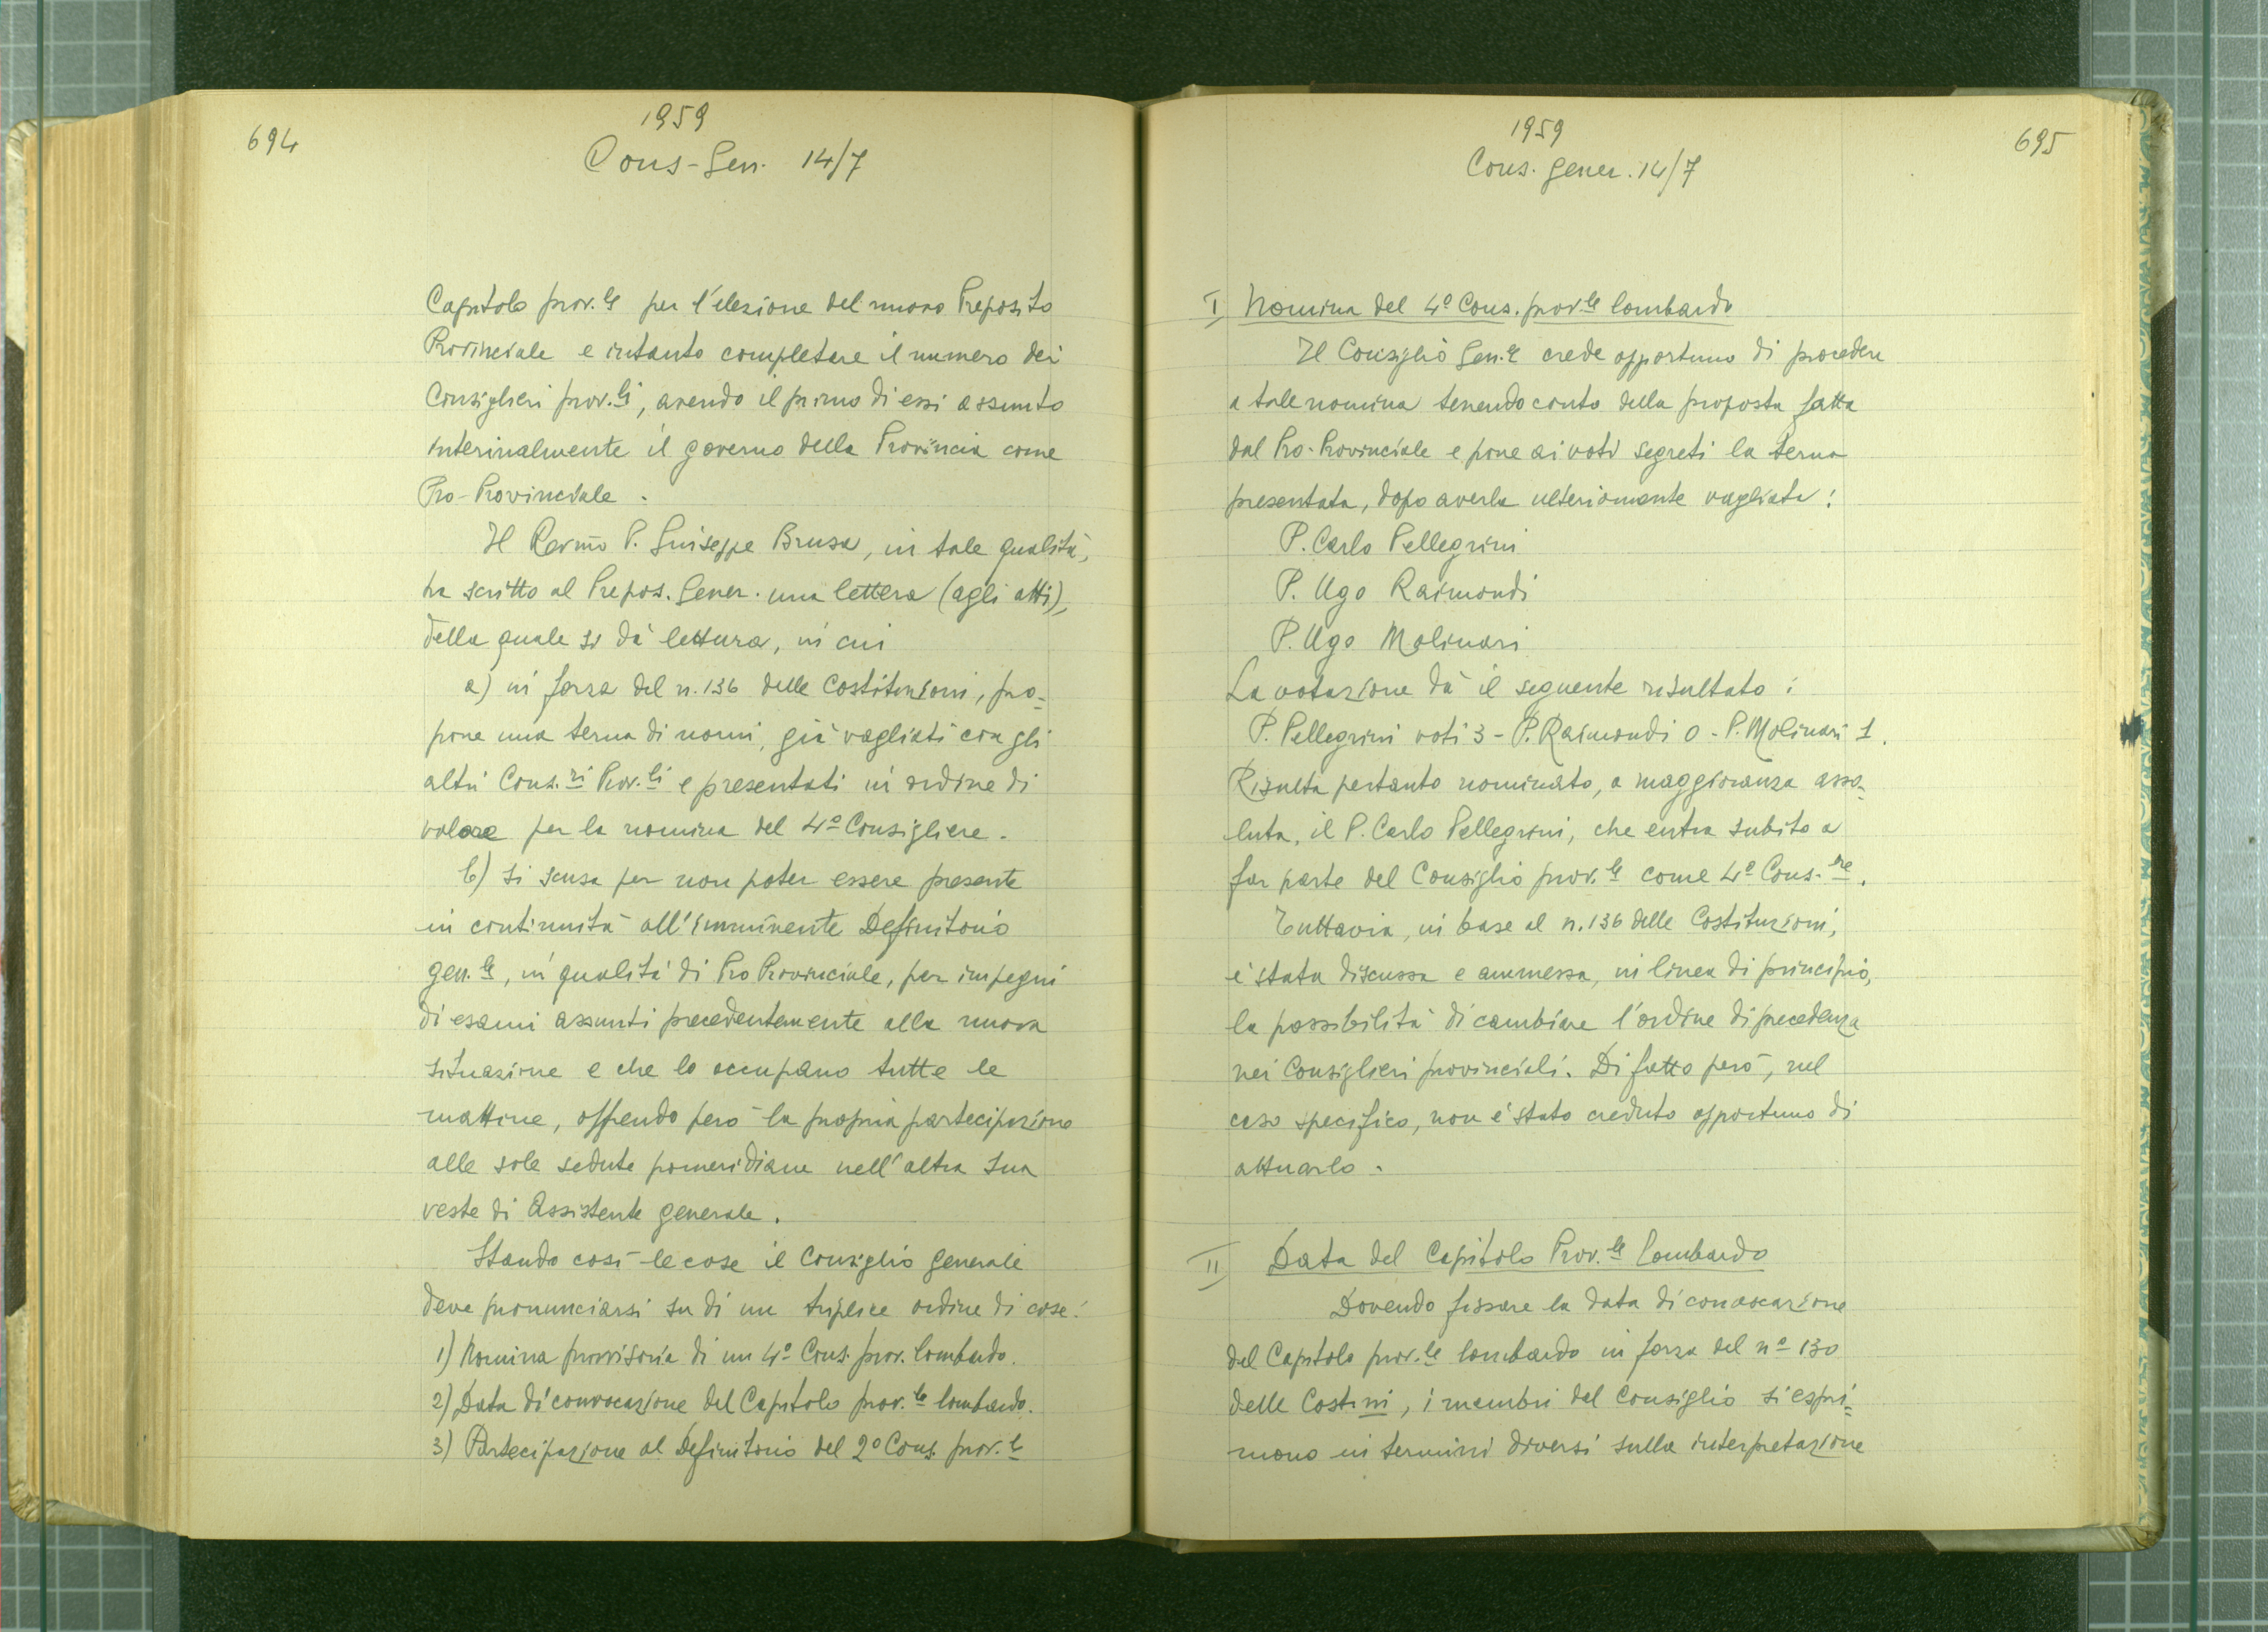 694
1959
Cons-Gen. 14/7
Capitolo prov.le per l'elezione del nuovo Preposito
Provinciale e intanto completare il numero dei
Consiglieri prov.li, avendo il primo di essi assunto
interinalmente il governo della Provincia come
Pro-Provinciale.
Il Rev.mo P. Giuseppe Brusa, in tale qualità,
ha scritto al Prepos. Gener. una lettera (agli atti),
della quale si dà lettura, in cui
a) in forza del n. 136 delle Costituzioni, pro=
pone una terna di nomi, già vagliati con gli
altri Cons.ri Prov.li e presentati in ordine di
valore per la nomina del 4º Consigliere.
b) si scusa per non poter essere presente
in continuità all'imminente Definitorio
gen.le, in qualità di Pro Provinciale, per impegni
di esami assunti precedentemente alla nuova
situazione e che lo occupano tutte le
mattine, offrendo però la propria partecipazione
alle sole sedute pomeridiane nell'altra sua
veste di Assistente generale.
Stando così le cose il Consiglio generale
deve pronunciarsi su di un triplice ordine di cose:
1) Nomina provvisoria di un 4º Cons. prov. lombardo.
2) Data di convocazione del Capitolo prov.le lombardo.
3) Partecipazione al Definitorio del 2º Cons. prov.le
1959
Cons. gener. 14/7
695
I Nomina del 4º Cons. prov.le lombardo
Il Consiglio Gen.le crede opportuno di procedere
a tale nomina tenendo conto della proposta fatta
dal Pro-Provinciale e pone ai voti segreti la terna
presentata, dopo averla ulteriormente vagliata:
P. Carlo Pellegrini
P. Ugo Raimondi
P. Ugo Molinari
La votazione dà il seguente risultato:
P. Pellegrini voti 3 - P. Raimondi 0 - P. Molinari 1.
Risulta pertanto nominato, a maggioranza asso=
luta, il P. Carlo Pellegrini, che entra subito a
far parte del Consiglio prov.le come 4º Cons.re.
Tuttavia, in base al n. 136 delle Costituzioni,
è stata discussa e ammessa, in linea di principio,
la possibilità di cambiare l'ordine di precedenza
nei Consiglieri provinciali. Di fatto però, nel
caso specifico, non è stato creduto opportuno di
attuarlo.
II Data del Capitolo Prov.le lombardo
Dovendo fissare la data di convocazione
del Capitolo prov.le lombardo in forza del nº 130
delle Cost.ni, i membri del Consiglio si espri=
mono in termini diversi sulla interpretazione